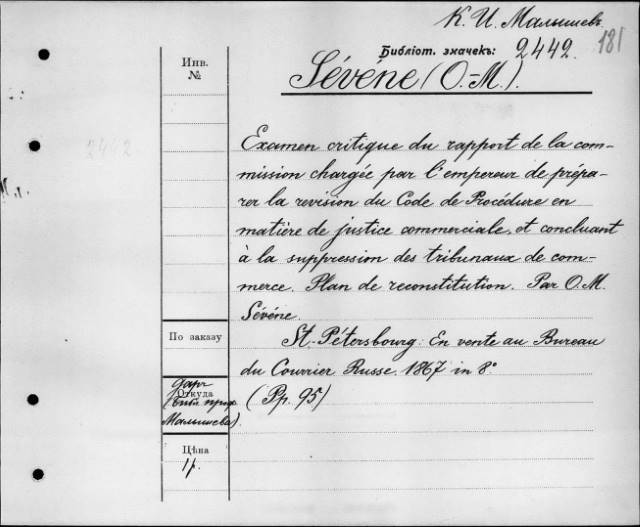 К. И. Малышевъ
181
Библіот. значекъ: 2442.
Инв. №
Sévéne (O.-M.).
2442
Examen critique du rapport de la com-
mission chargée par l'empereur de prépa-
rer la revision du Code de Procédure en
matière de justice commerciale, et concluant
à la suppression des tribunaux de com-
merce. Plan de reconstitution. Par O. M.
Sévéne.
По заказу
St. Pétersbourg: En vente au Bureau
du Courrier Russe. 1867 in 8°
Откуда
даръ
(библ. проф.
Малышева).
(Pp. 95)
Цѣна
1 р.